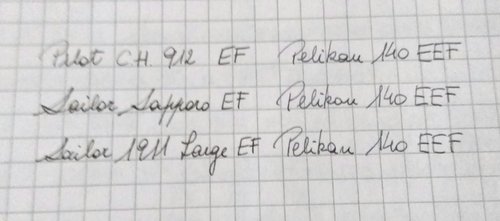 Pilot C.H. 912 EF Pelikan 140 EEF
Sailor Sapporo EF Pelikan 140 EEF
Sailor 1911 Large EF Pelikan 140 EEF